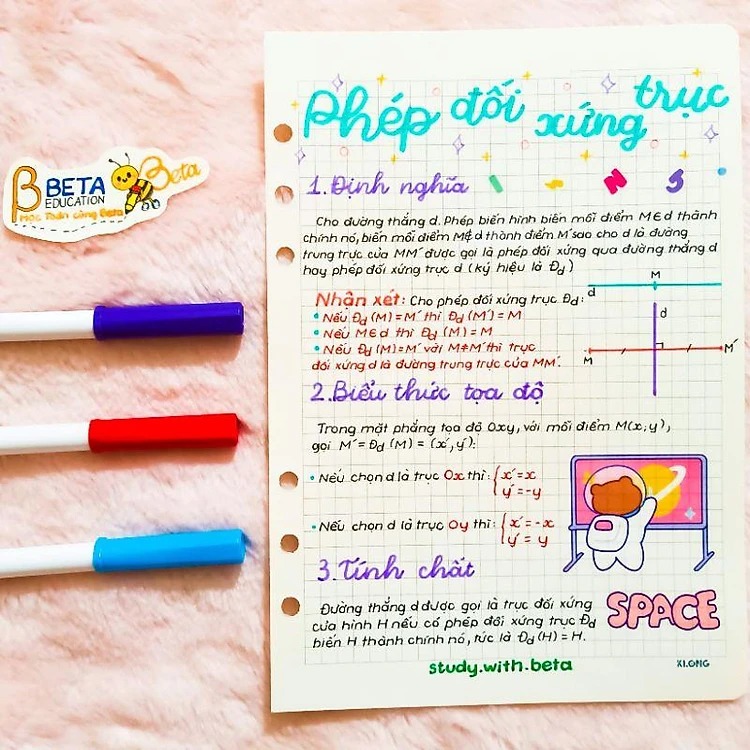 Phép đối xứng trục
β BETA Beta
EDUCATION
Học Toán cùng Beta
1. Định nghĩa
Cho đường thẳng d. Phép biến hình biến mỗi điểm M∈d thành
chính nó, biến mỗi điểm M∉d thành điểm M' sao cho d là đường
trung trực của MM' được gọi là phép đối xứng qua đường thẳng d
hay phép đối xứng trục d (ký hiệu là Đd)
Nhận xét: Cho phép đối xứng trục Đd:
• Nếu Đd (M) = M' thì Đd (M') = M
• Nếu M∈d thì Đd (M) = M
• Nếu Đd (M) = M' với M≠M' thì trục
đối xứng d là đường trung trực của MM'.
M
d
d
M
M'
2. Biểu thức tọa độ
Trong mặt phẳng tọa độ Oxy, với mỗi điểm M(x;y),
gọi M' = Đd (M) = (x', y'):
• Nếu chọn d là trục Ox thì: { x' = x
y' = -y
• Nếu chọn d là trục Oy thì: { x' = -x
y' = y
3. Tính chất
Đường thẳng d được gọi là trục đối xứng
của hình H nếu có phép đối xứng trục Đd
biến H thành chính nó, tức là Đd (H) = H.
SPACE
study.with.beta
XI.ONG